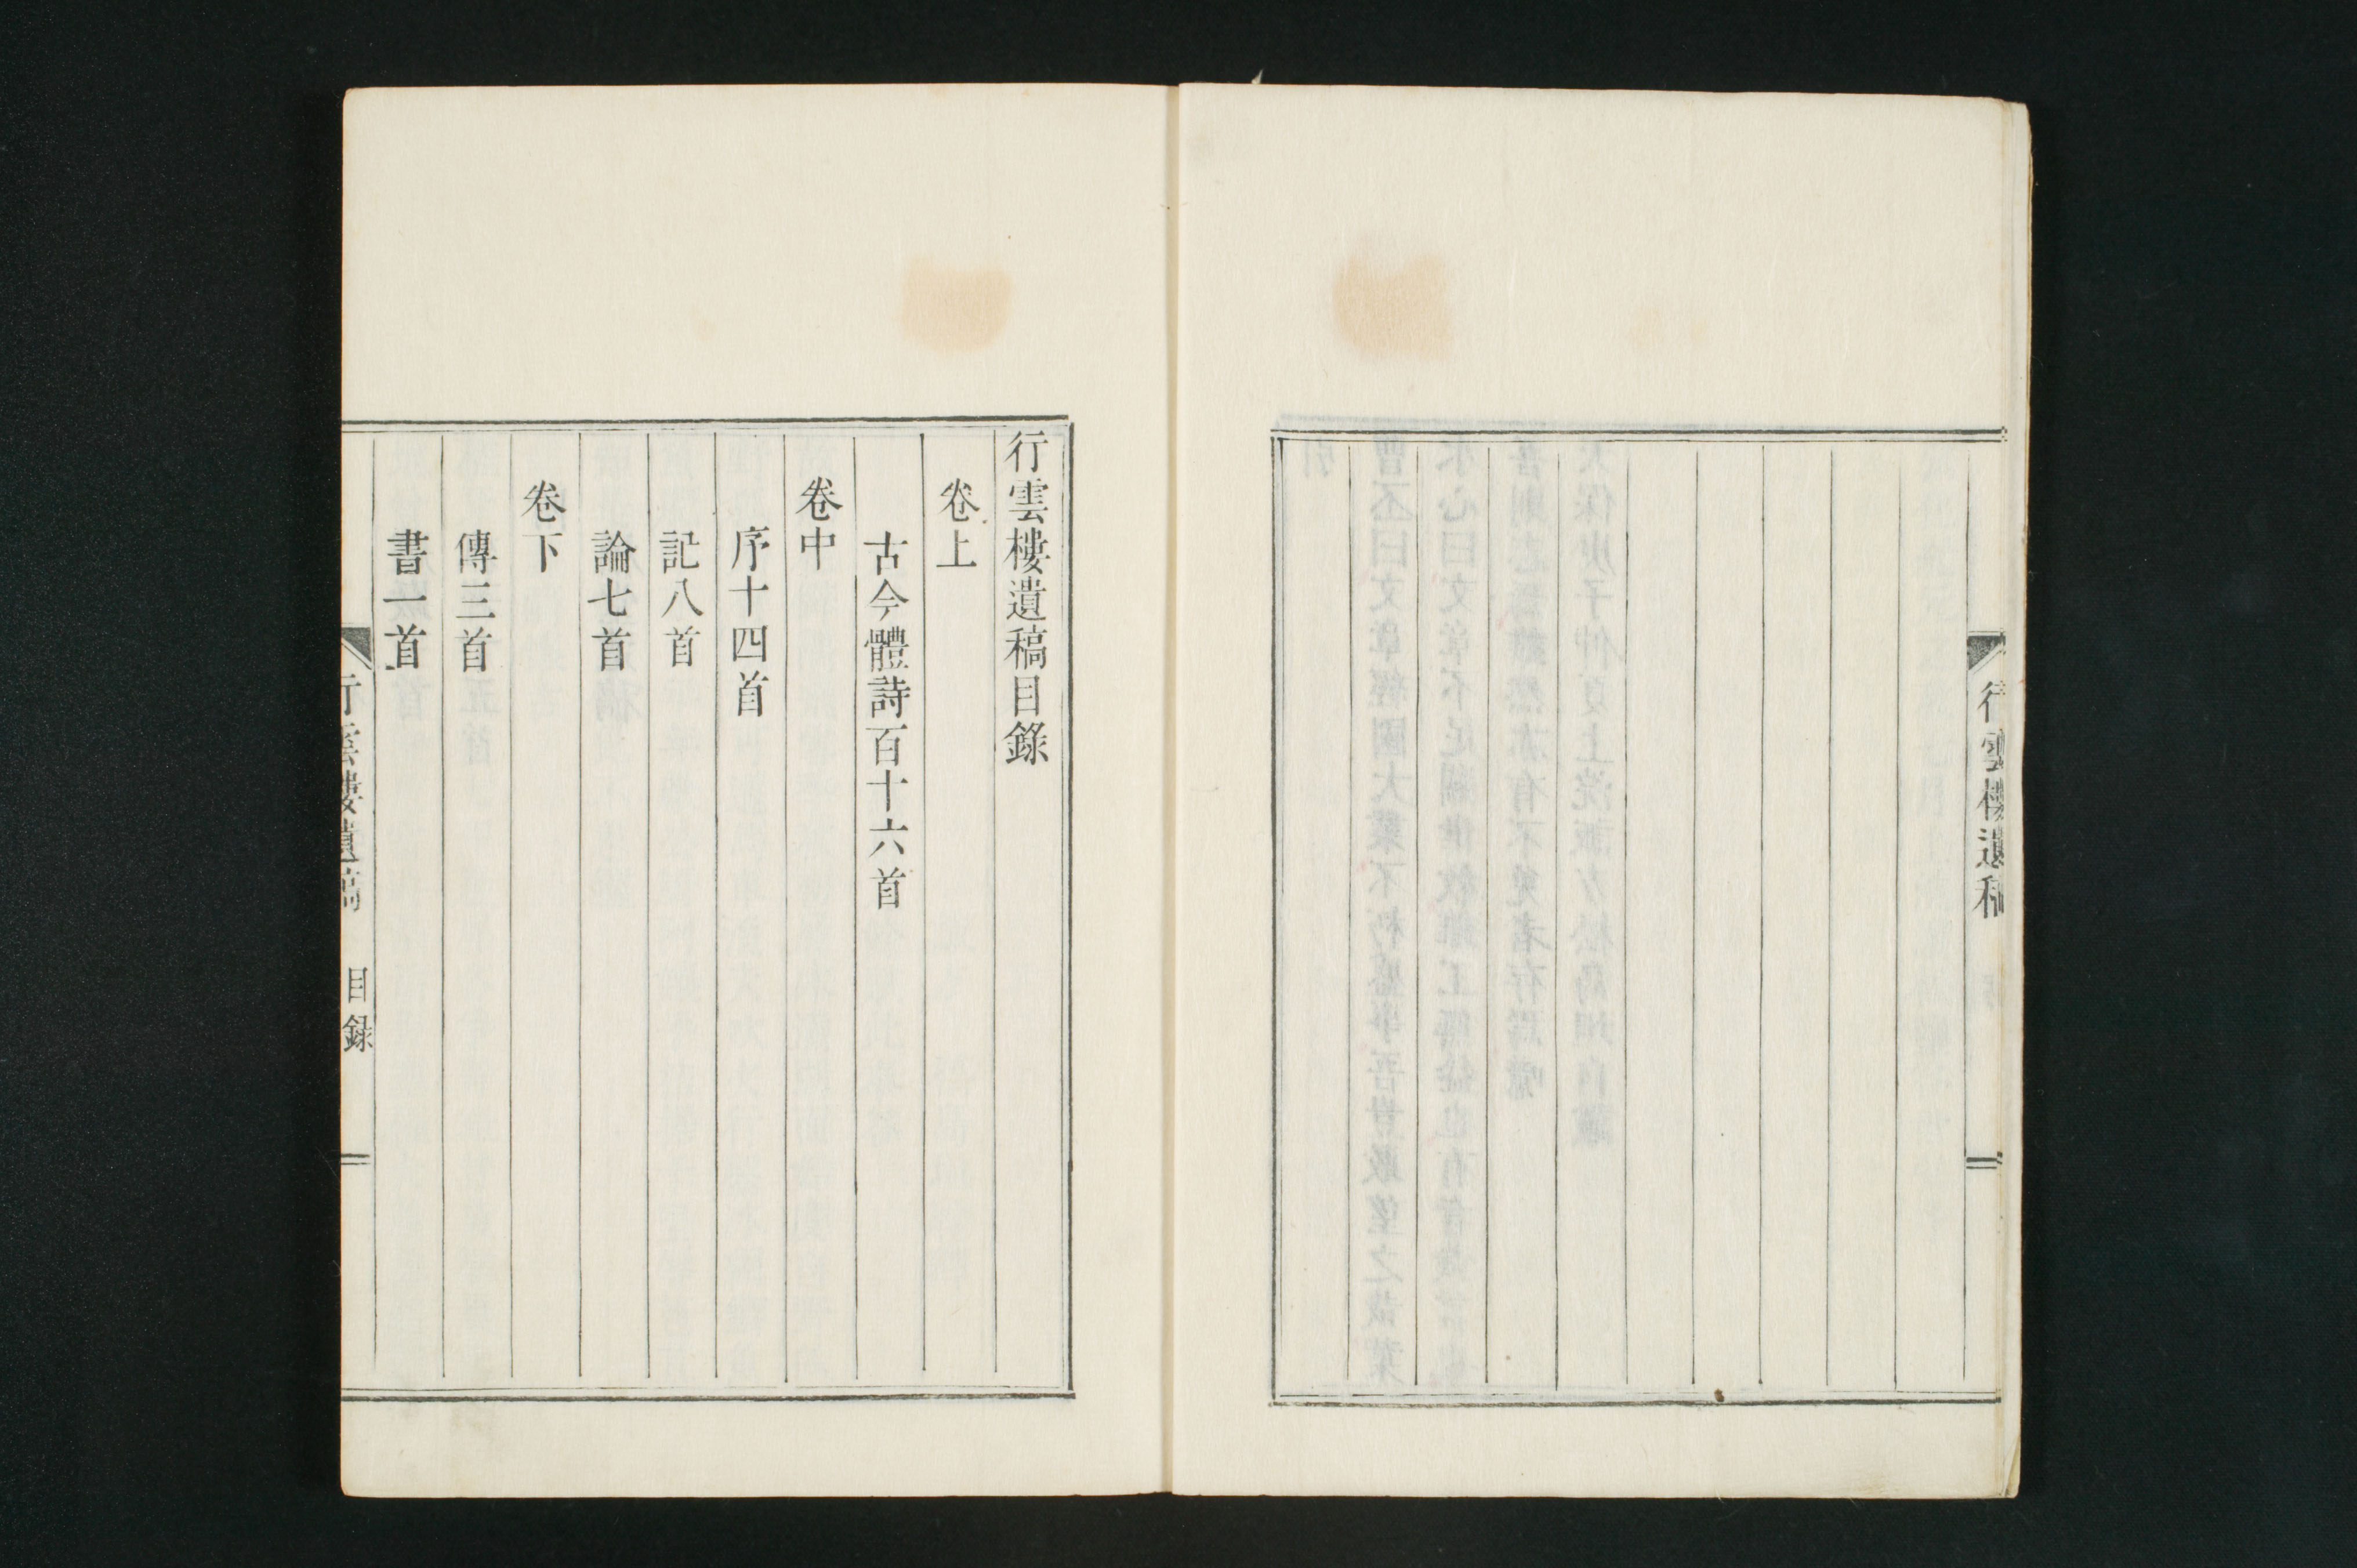 行雲樓遺稿
行雲樓遺稿目錄
卷上
古今體詩百十六首
卷中
序十四首
記八首
論七首
卷下
傳三首
書一首
行雲樓遺稿 目錄